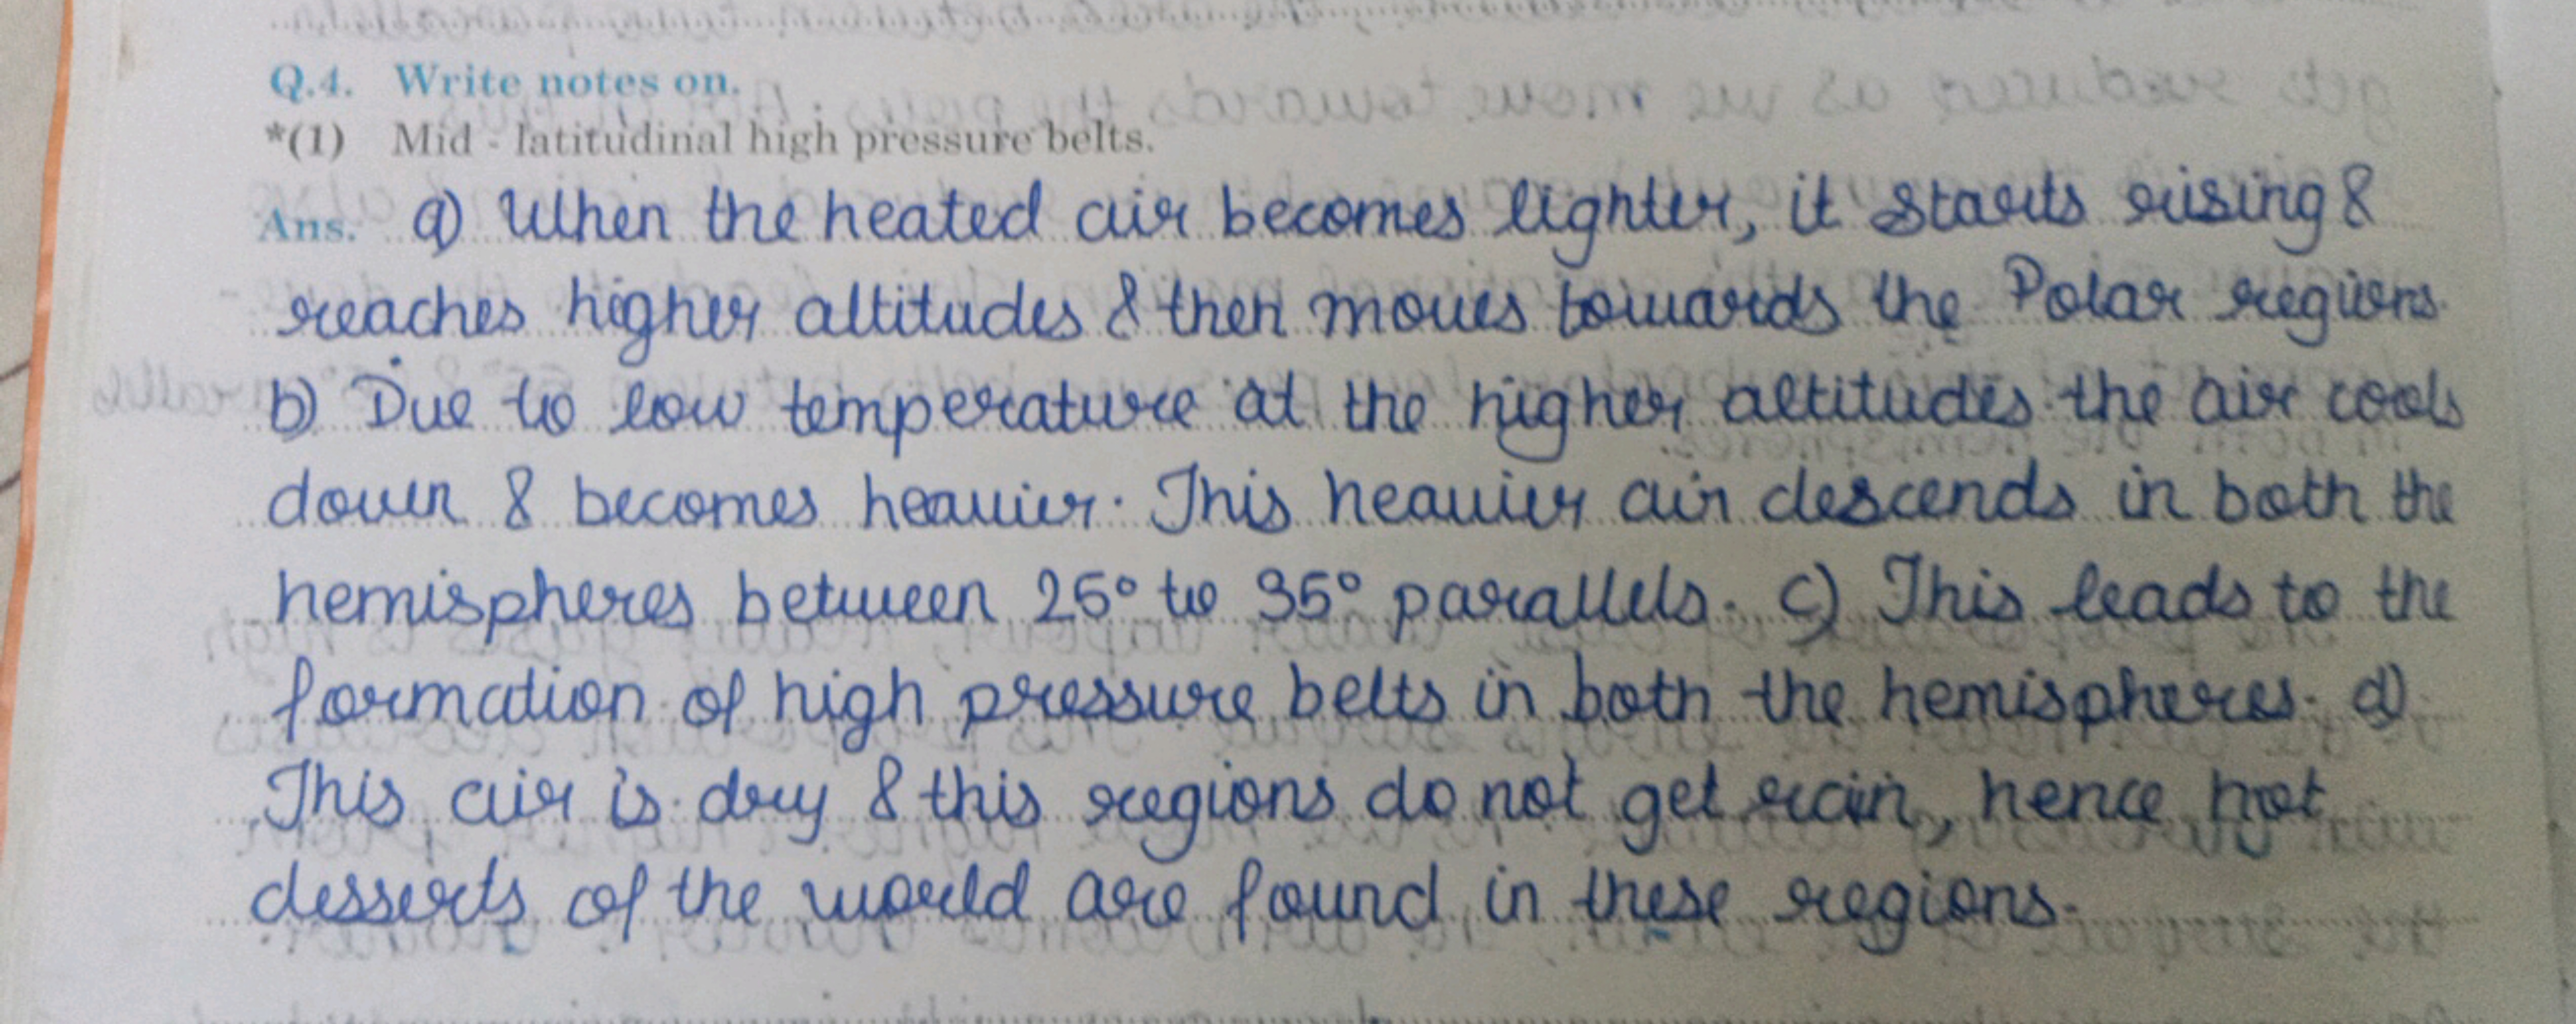 Q.4. Write notes on.
*(1) Mid - latitudinal high pressure belts.
Ans. a) When the heated air becomes lighter, it starts rising &
reaches higher altitudes & then moves towards the Polar regions.
b) Due to low temperature at the higher altitudes the air cools
down & becomes heavier. This heavier air descends in both the
hemispheres between 25° to 35° parallels. c) This leads to the
formation of high pressure belts in both the hemispheres. d)
This air is dry & this regions do not get rain, hence hot
desserts of the world are found in these regions.